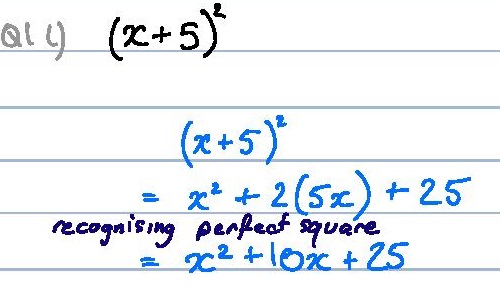 Q1 i) (x+5)²
(x+5)²
= x² + 2(5x) + 25
recognising perfect square
= x² + 10x + 25